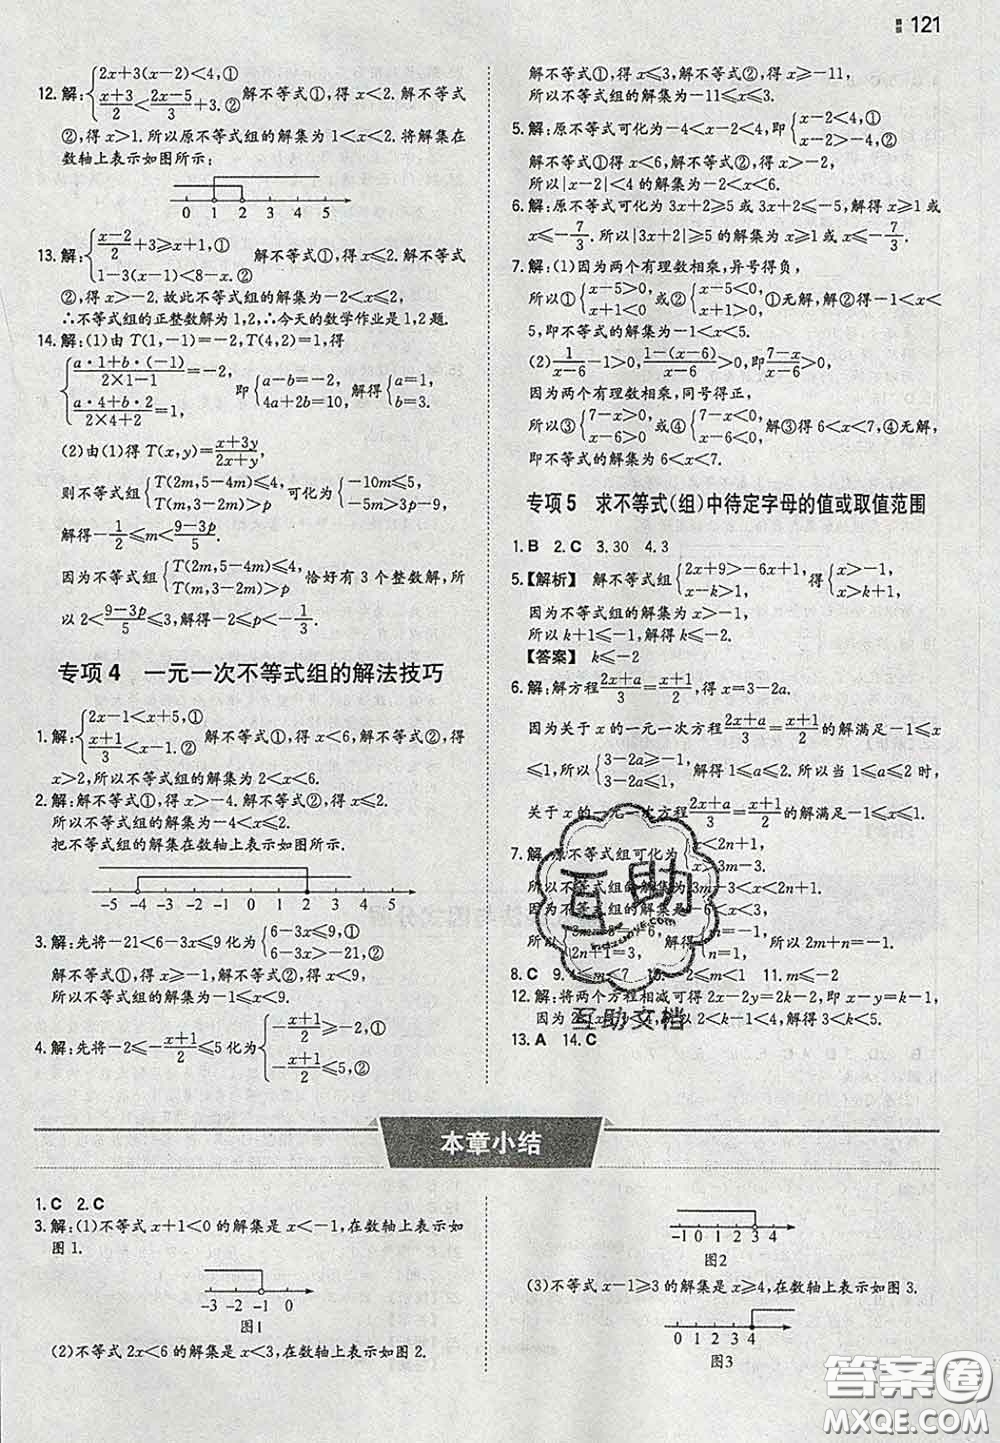 121
12.解:{2x+3(x-2)<4,①
(x+3)/2<(2x-5)/3+3.② 解不等式①,得 x<2.解不等式
②,得 x>1.所以原不等式组的解集为 1<x<2.将解集在
数轴上表示如图所示:
0 1 2 3 4 5
13.解:{(x-2)/2+3≥x+1,①
1-3(x-1)<8-x.② 解不等式①,得 x≤2.解不等式
②,得 x>-2.故此不等式组的解集为-2<x≤2,
∴不等式组的正整数解为 1,2,∴今天的数学作业是 1,2 题.
14.解:(1)由 T(1,-1)=-2,T(4,2)=1,得
{(a·1+b·(-1))/(2×1-1)=-2,
(a·4+2b)/(2×4+2)=1,
即{a-b=-2,
4a+2b=10,
解得{a=1,
b=3.
(2)由(1)得 T(x,y)=(x+3y)/(2x+y),
则不等式组{T(2m,5-4m)≤4,
T(m,3-2m)>p
可化为{-10m≤5,
-5m>3p-9,
解得-1/2≤m<(9-3p)/5.
因为不等式组{T(2m,5-4m)≤4,
T(m,3-2m)>p
恰好有 3 个整数解,所
以 2<(9-3p)/5≤3,解得-2≤p<-1/3.
专项 4 一元一次不等式组的解法技巧
1.解:{2x-1<x+5,①
(x+1)/3<x-1.② 解不等式①,得 x<6,解不等式②,得
x>2,所以不等式组的解集为 2<x<6.
2.解:解不等式①,得 x>-4.解不等式②,得 x≤2.
所以不等式组的解集为-4<x≤2.
把不等式组的解集在数轴上表示如图所示.
-5 -4 -3 -2 -1 0 1 2 3 4 5
3.解:先将-21<6-3x≤9 化为{6-3x≤9,①
6-3x>-21,②
解不等式①,得 x≥-1,解不等式②,得 x<9,
所以不等式组的解集为-1≤x<9.
4.解:先将-2≤-(x+1)/2≤5 化为{-(x+1)/2≥-2,①
-(x+1)/2≤5,②
解不等式①,得 x≤3,解不等式②,得 x≥-11,
所以不等式组的解集为-11≤x≤3.
5.解:原不等式可化为-4<x-2<4,即{x-2<4,①
x-2>-4,②
解不等式①得 x<6,解不等式②,得 x>-2,
所以|x-2|<4 的解集为-2<x<6.
6.解:原不等式可化为 3x+2≥5 或 3x+2≤-5,解得 x≥1 或
x≤-7/3.所以|3x+2|≥5 的解集为 x≥1 或 x≤-7/3.
7.解:(1)因为两个有理数相乘,异号得负,
所以①{x-5>0,
x+1<0
或②{x-5<0,
x+1>0,
①无解,解②得-1<x<
5,即不等式的解集为-1<x<5.
(2)1/(x-6)-1>0,(1-(x-6))/(x-6)>0,即(7-x)/(x-6)>0,
因为两个有理数相乘,同号得正,
所以③{7-x>0,
x-6>0
或④{7-x<0,
x-6<0,
解③得 6<x<7,④无解,
即不等式的解集为 6<x<7.
专项 5 求不等式(组)中待定字母的值或取值范围
1.B 2.C 3.30 4.3
5.【解析】 解不等式组{2x+9>-6x+1,
x-k>1,
得{x>-1,
x>k+1,
因为不等式组的解集为 x>-1,
所以 k+1≤-1,解得 k≤-2.
【答案】 k≤-2
6.解:解方程(2x+a)/3=(x+1)/2,得 x=3-2a.
因为关于 x 的一元一次方程(2x+a)/3=(x+1)/2的解满足-1≤x
≤1,所以{3-2a≥-1,
3-2a≤1,
解得 1≤a≤2.所以当 1≤a≤2 时,
关于 x 的一元一次方程(2x+a)/3=(x+1)/2的解满足-1≤x≤1.
7.解:原不等式组可化为{x<2n+1,
x>3m-3,
因为不等式组的解集为 3m-3<x<2n+1,
因为不等式组的解集为-6<x
所以
2n+1=3,
解得
所以 2m+n=-1.
8.C 9. ≤m<7 10.-2≤m<1 11.m≥-2
12.解:将两个方程相减可得 2x-2y=2k-2,即 x-y=k-1,
因为 2<x-y<4,所以 2<k-1<4,解得 3<k<5.
13.A 14.C
互助
互助文档
本章小结
1.C 2.C
3.解:(1)不等式 x+1<0 的解集是 x<-1,在数轴上表示如
图 1.
-3 -2 -1 0
图1
(2)不等式 2x<6 的解集是 x<3,在数轴上表示如图 2.
-1 0 1 2 3 4
图2
(3)不等式 x-1≥3 的解集是 x≥4,在数轴上表示如图 3.
0 1 2 3 4
图3
答案圈
MXQE.COM